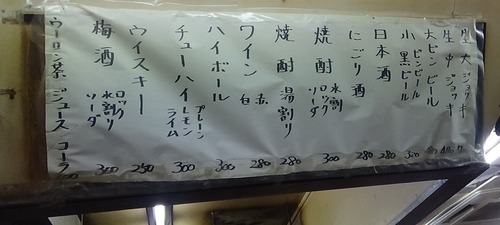 生大ジョッキ
生中ジョッキ
大ビンビール
小ビンビール
黒ビール 300
日本酒 280
にごり酒 280
焼酎 水割 ロック ソーダ 300
焼酎湯割り 280
ワイン 赤 白 280
ハイボール 300
チューハイ プレーン レモン ライム 300
ウイスキー 250
梅酒 ロック 水割り ソーダ 300
ウーロン茶 ジュース コーラ